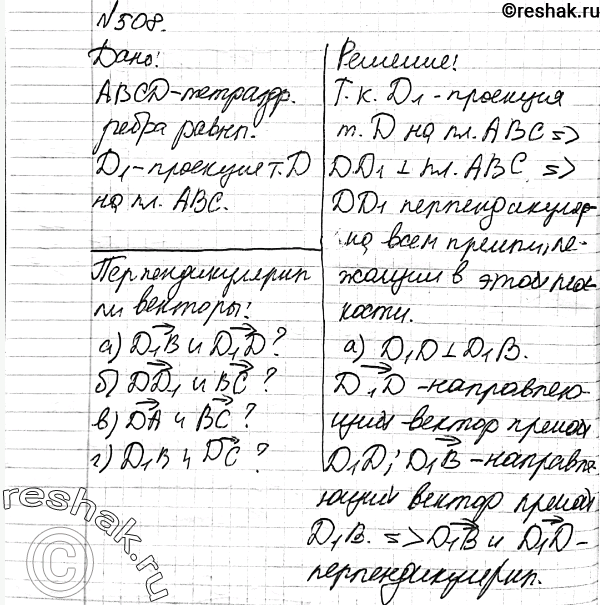 ©reshak.ru
№508.
Дано:
ABCD-тетраэдр.
ребра равны.
D₁-проекция т. D
на пл. ABC.
Перпендикулярны
ли векторы:
а) D₁B и D₁D ?
б) DD₁ и BC ?
в) DA и BC ?
г) D₁B и DC ?
Решение:
Т.к. D₁-проекция
т. D на пл. ABC =>
DD₁ ⊥ пл. ABC =>
DD₁ перпендикуляр-
на всем прямым, ле-
жащим в этой плос-
кости.
а) D₁D ⊥ D₁B.
D₁D -направляю-
щий вектор прямой
D₁D; D₁B -направля-
ющий вектор прямой
D₁B. => D₁B и D₁D -
перпендикулярны.
reshak.ru
©